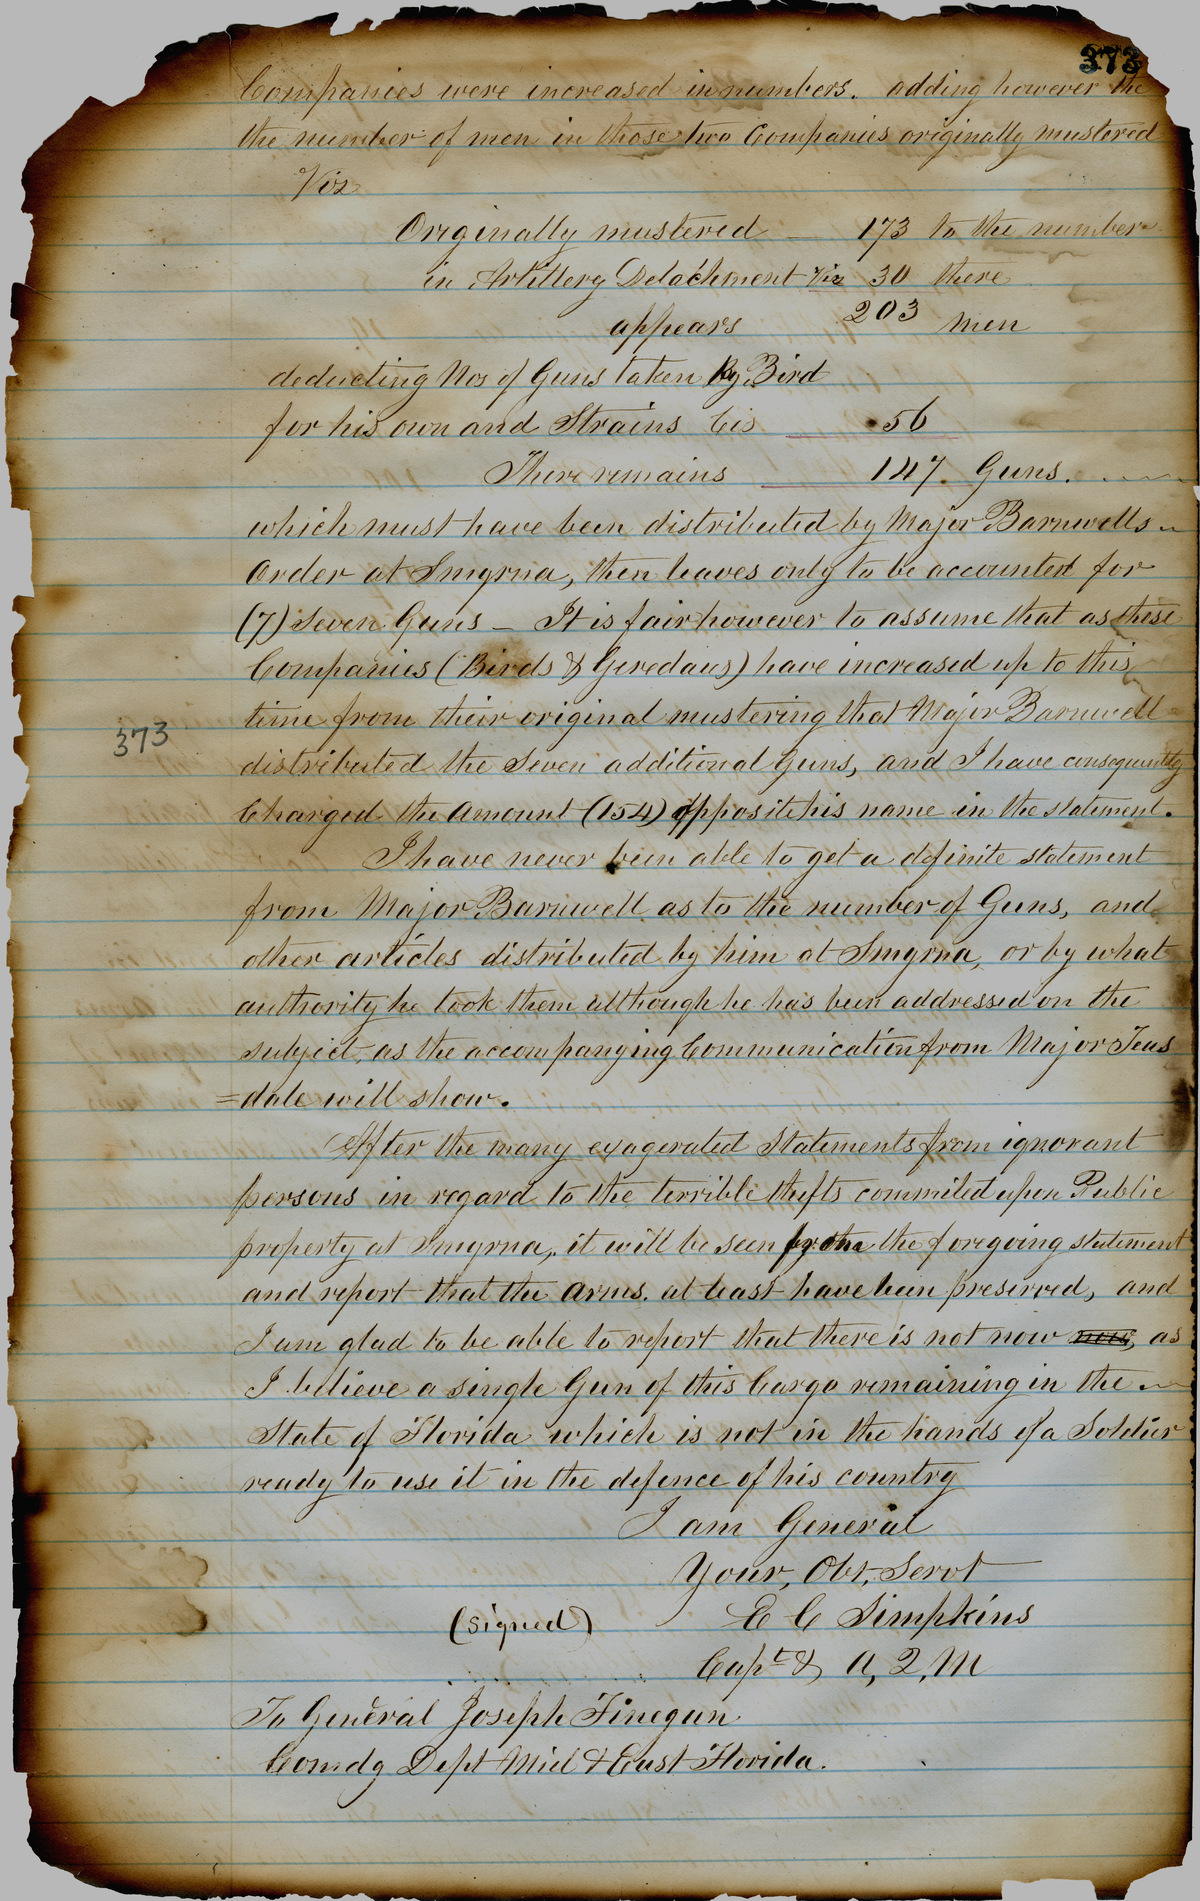 373
Companies were increased in numbers. adding however the
the number of men in those two Companies originally mustered
Viz
Originally mustered — 173 to the number
in Artillery Detachment Viz 30 there
appears 203 men
deducting Nos of Guns taken by Bird
for his own and Strains Cis 56
There remains 147 Guns.
which must have been distributed by Major Barnwells
Order at Smyrna, then leaves only to be accounted for
(7) Seven Guns — It is fair however to assume that as these
Companies (Birds & Geredaus) have increased up to this
time from their original mustering that Major Barnwell
373
distributed the Seven additional Guns, and I have consequently
Charged the Amount (154) opposite his name in the statement.
I have never been able to get a definite statement
from Major Barnwell as to the number of Guns, and
other articles distributed by him at Smyrna, or by what
authority he took them although he has been addressed on the
subject, as the accompanying Communication from Major Teas
=dale will show.
After the many exagerated Statements from ignorant
persons in regard to the terrible thefts commited upon Public
property at Smyrna, it will be seen from the foregoing statement
and report that the Arms. at least have been preserved, and
I am glad to be able to report that there is not now now, as
I believe a single Gun of this Cargo remaining in the
State of Florida which is not in the hands of a Soldier
ready to use it in the defence of his country
I am General
Your, Obt, Servt
(signed) E C Simpkins
Capt & A, Q, M
To General Joseph Finegan
Comdg Dept Mid & East Florida.